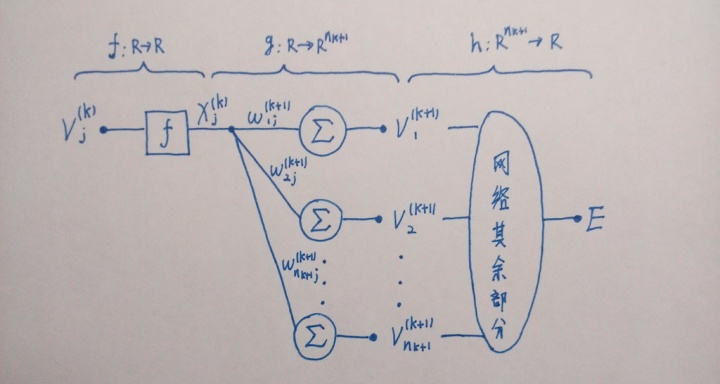 f: R→R g: R→R^{n_{k+1}} h: R^{n_{k+1}}→R
V_j^{(k)} f X_j^{(k)} ω_{1j}^{(k+1)} Σ V_1^{(k+1)}
ω_{2j}^{(k+1)} Σ V_2^{(k+1)} E
ω_{n_{k+1}j}^{(k+1)}
Σ V_{n_{k+1}}^{(k+1)}
网络其余部分